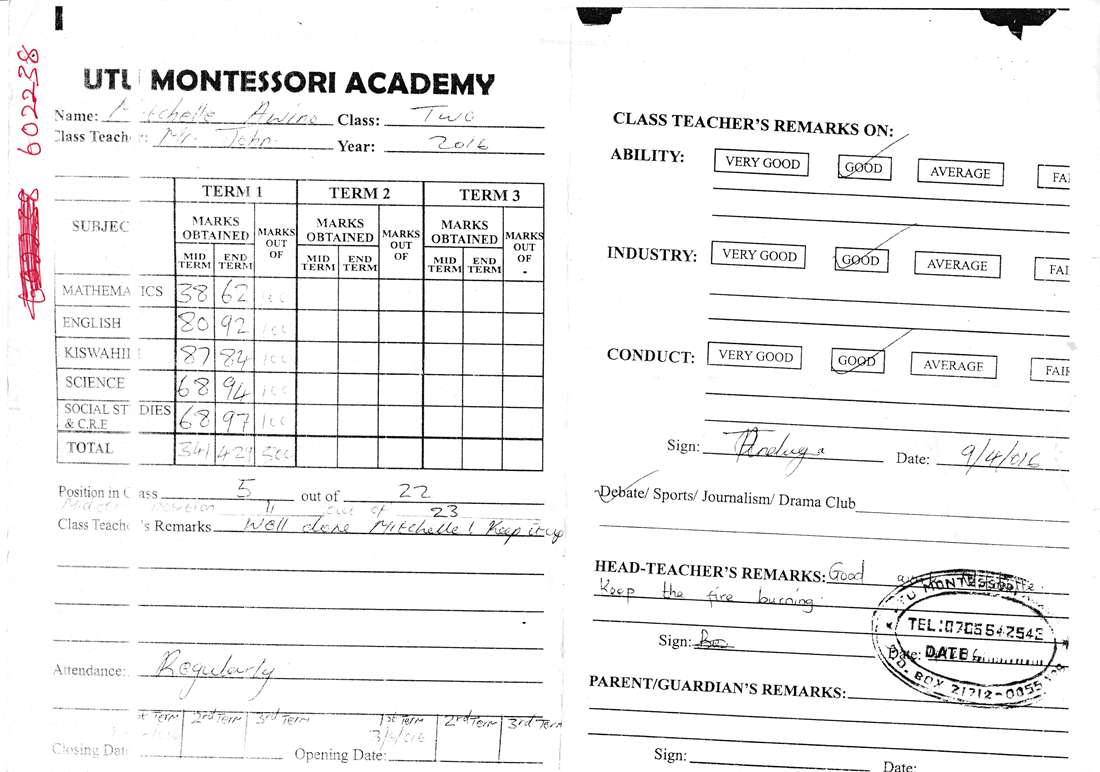 602238
UTU MONTESSORI ACADEMY
Name: Mitchelle Awino Class: Two
Class Teacher: Mr. John Year: 2016
SUBJEC TERM 1 TERM 2 TERM 3
MARKS OBTAINED MARKS OUT OF MARKS OBTAINED MARKS OUT OF MARKS OBTAINED MARKS OUT OF -
MID TERM END TERM MID TERM END TERM MID TERM END TERM
MATHEMATICS 38 62 100
ENGLISH 80 92 100
KISWAHILI 87 84 100
SCIENCE 68 94 100
SOCIAL STUDIES & C.R.E 68 97 100
TOTAL 341 429 500
Position in Class 5 out of 22
Position 11 out of 23
Class Teacher's Remarks Well done Mitchelle! Keep it up
Attendance: Regularly
1st Term 2nd Term 3rd Term 1st Term 2nd Term 3rd Term
Closing Date Opening Date:
CLASS TEACHER'S REMARKS ON:
ABILITY: VERY GOOD GOOD AVERAGE FAI
INDUSTRY: VERY GOOD GOOD AVERAGE FAI
CONDUCT: VERY GOOD GOOD AVERAGE FAIR
Sign: Date: 9/4/016
Debate/ Sports/ Journalism/ Drama Club
HEAD-TEACHER'S REMARKS: Good
Keep the fire burning.
Sign: Date:
U MONTESSORI
TEL:0705642543
DATE
P.O. BOX 21712-0055
PARENT/GUARDIAN'S REMARKS:
Sign: Date: